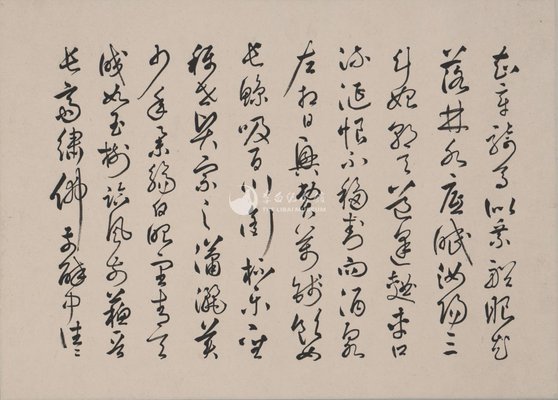 知章騎馬似乘船眼花
落井水底眠汝陽三
斗始朝天道逢麴車口
流涎恨不移封向酒泉
左相日興費萬錢飲如
長鯨吸百川銜杯樂聖
稱世賢宗之瀟灑美
少年舉觴白眼望青天
皎如玉樹臨風前蘇晉
長齋繡佛前醉中往々